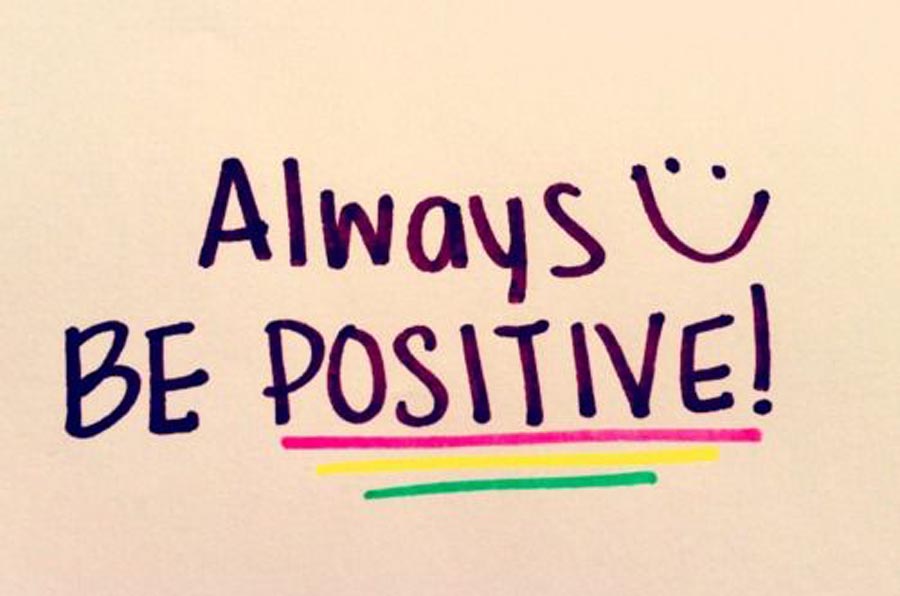 Always
BE POSITIVE!